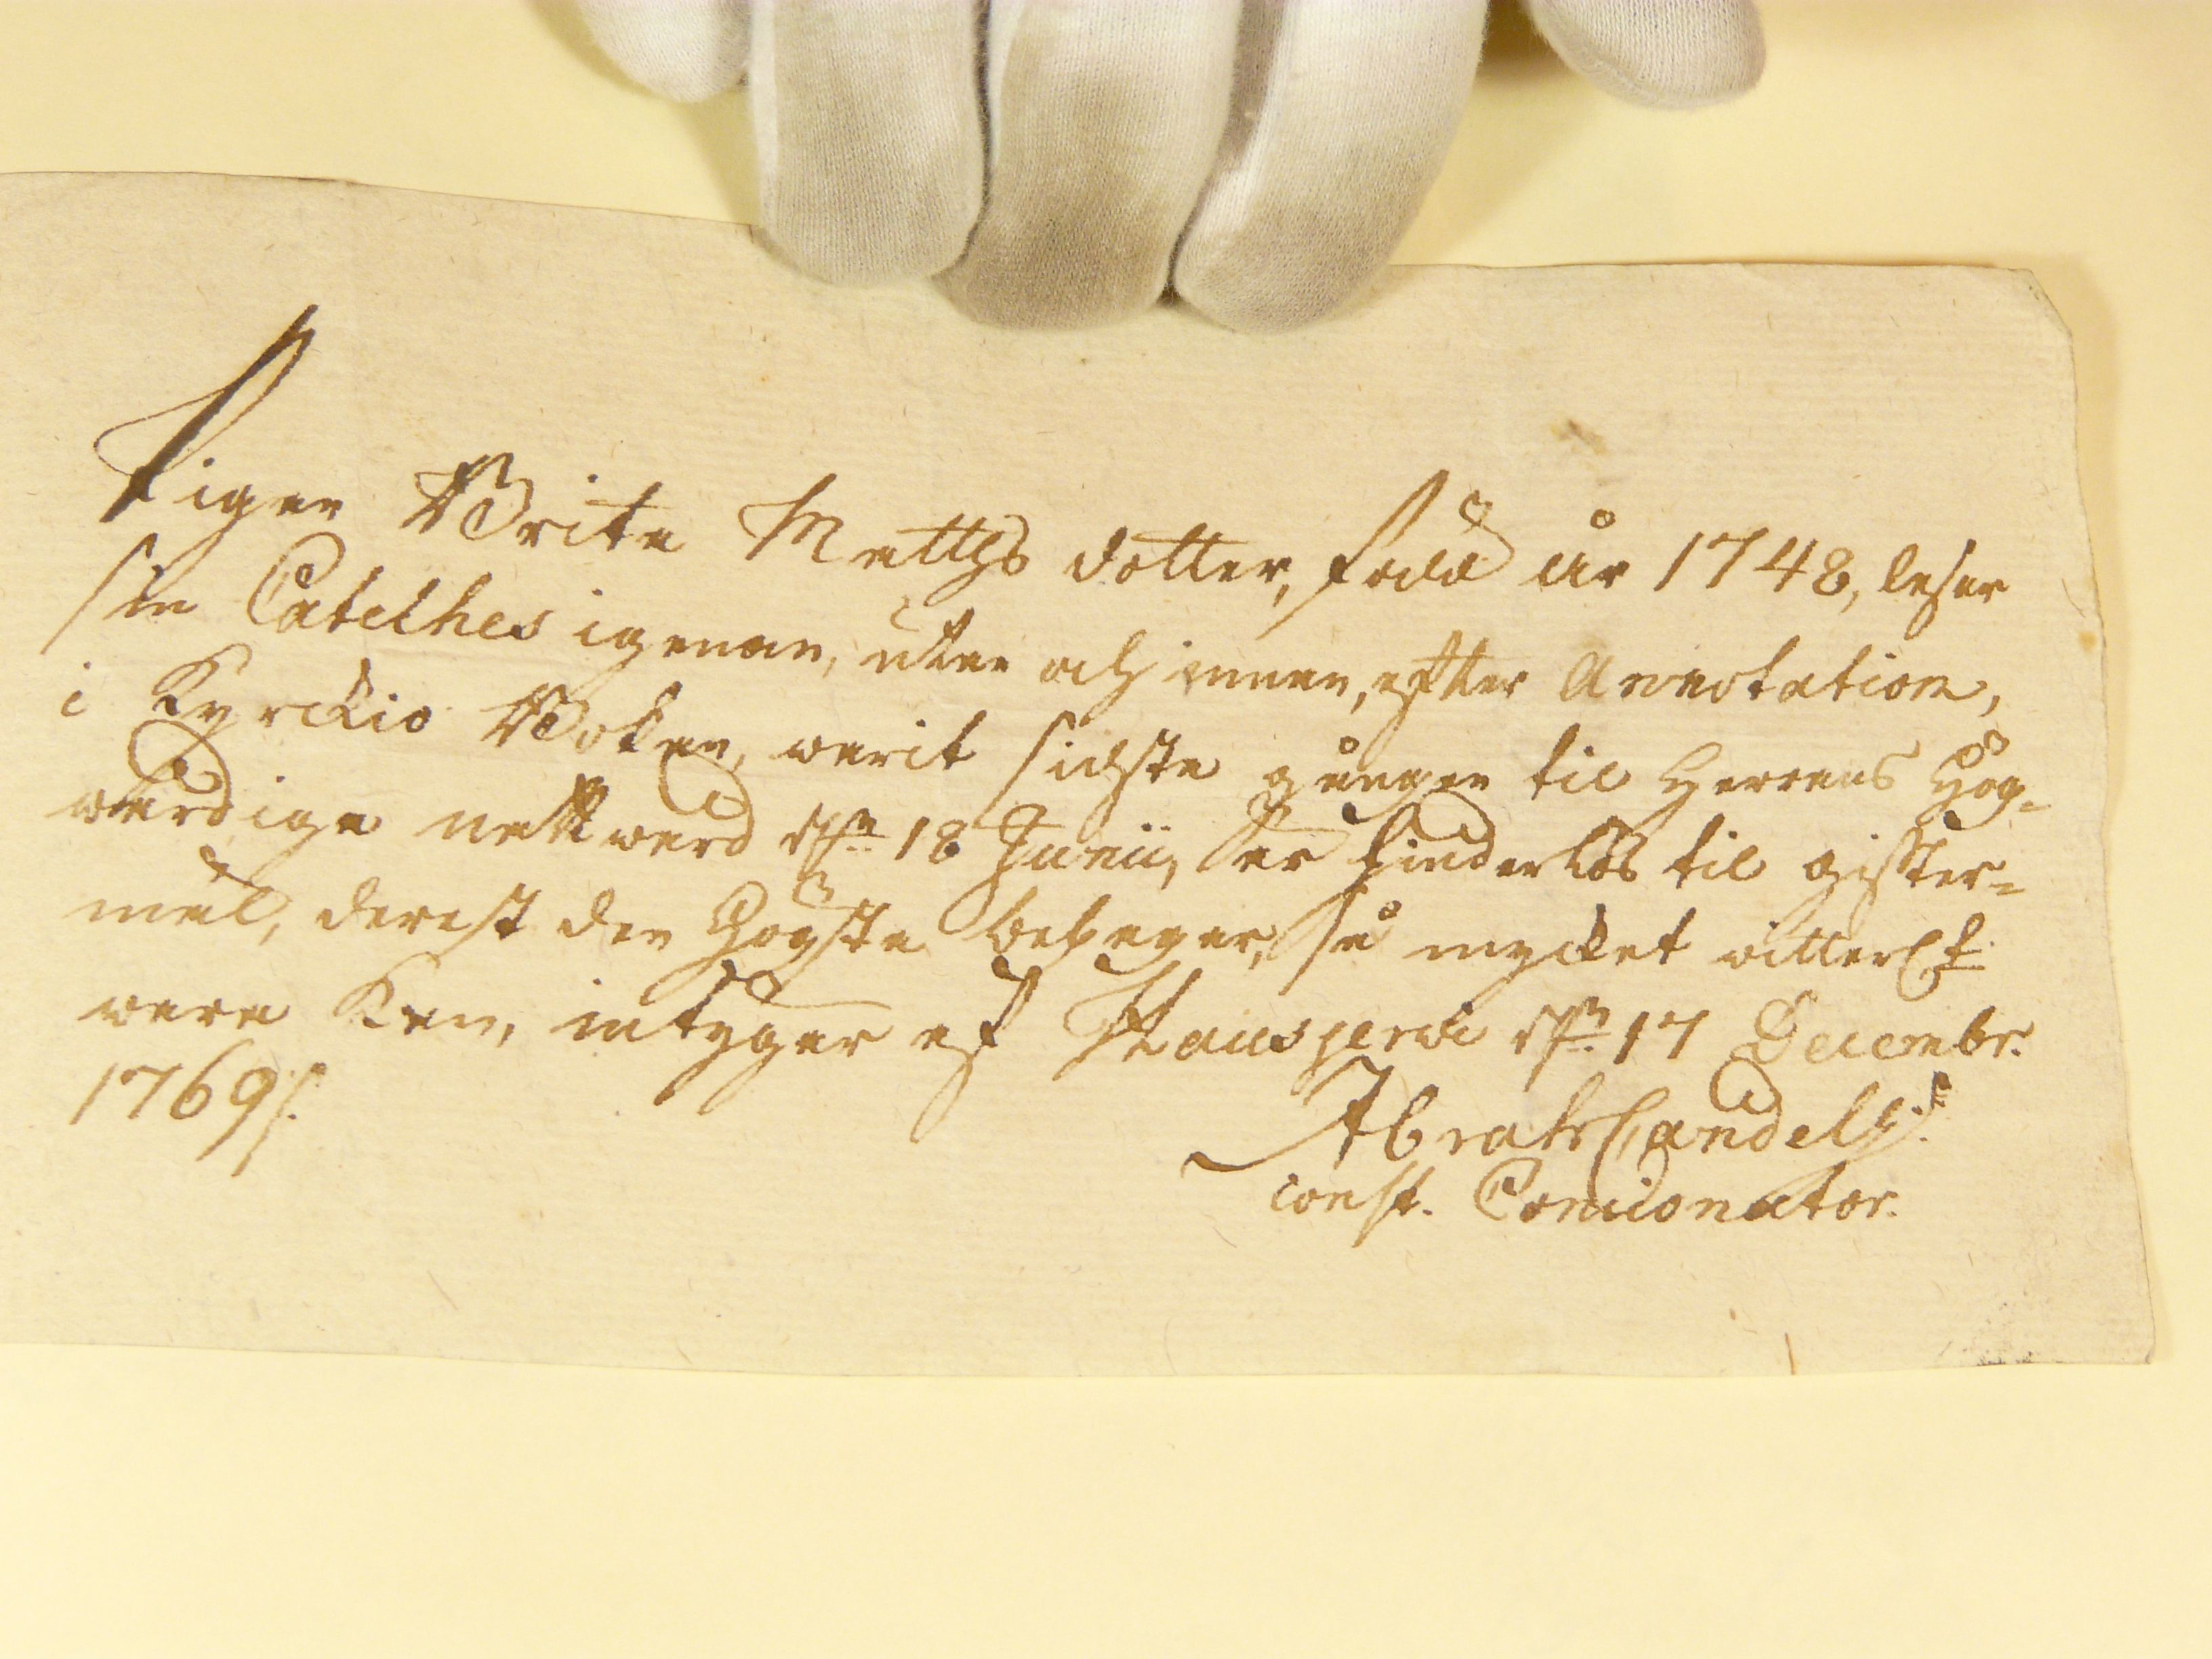 Pigan Brita Matths dotter, född år 1748, läser
sin Cateches igenom, utan och innan, efter Annotation,
i Kyrckio Boken, warit sidste gången til Herrans Hög-
wärdiga nattward d. 18 Junii, är hinderlös til gifter-
mål, derest den Högste behagar, så mycket witterl:t
wara kan, intygar af Hausjerwi d. 17 Decembr.
1769/.
Abrah: Candel
const. Concionator.